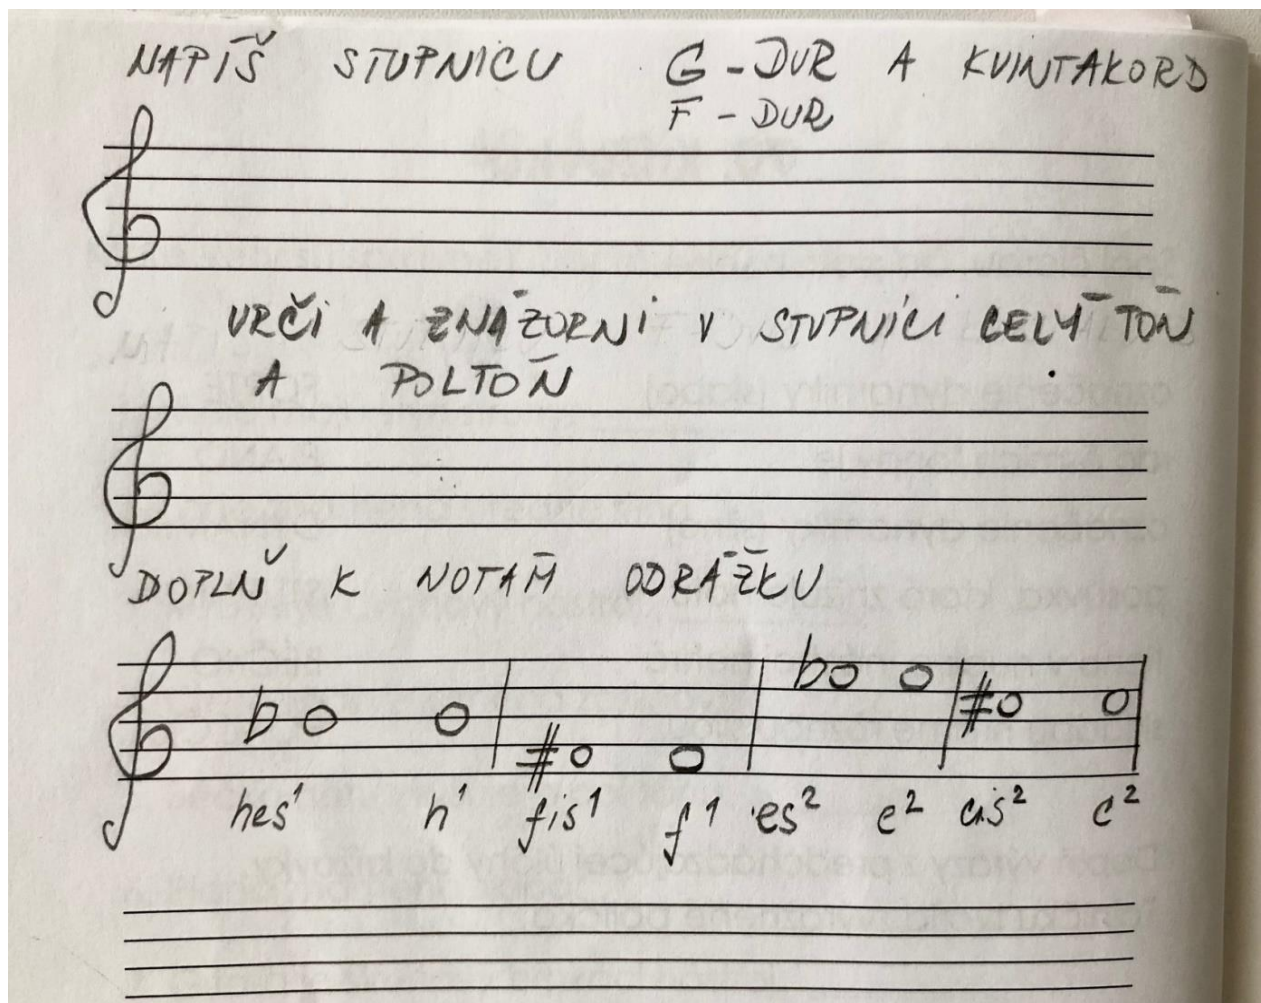 NAPÍŠ STUPNICU G-DUR A KVINTAKORD
F-DUR
URČI A ZNÁZORNI V STUPNICI CELÝ TÓN
A POLTÓN
DOPLŇ K NOTÁM ODRÁŽKU
hes¹ h¹ fis¹ f¹ es² e² cis² c²